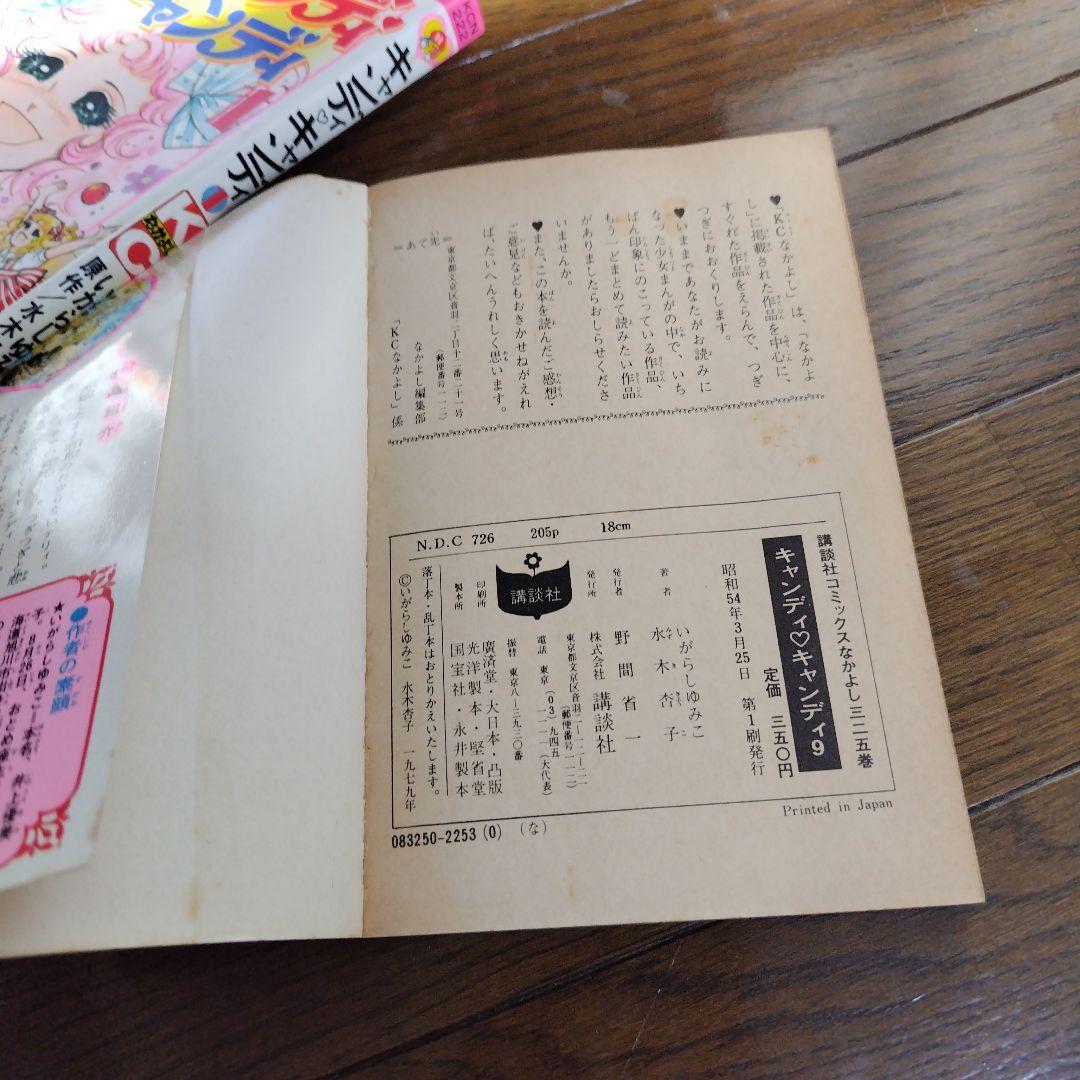 キャンディ♡キャンディ
1
KC
KCN
222
原作/水木
♥「KCなかよし」は、「なかよ
し」に掲載された作品を中心に、
すぐれた作品をえらんで、つぎ
つぎにおおくりします。
♥いままであなたがお読みに
なった少女まんがの中で、いち
ばん印象にのこっている作品、
もう一どまとめて読みたい作品
がありましたらおしらせくださ
いませんか。
♥また、この本を読んだご感想・
ご意見などもおきかせねがえれ
ば、たいへんうれしく思います。
=あて先=
東京都文京区音羽二丁目十二番二十一号
(郵便番号一一二)
なかよし編集部
「KCなかよし」係
講談社コミックスなかよし三二五巻
キャンディ♡キャンディ9
定価 三五〇円
昭和54年3月25日 第1刷発行
著者 いがらしゆみこ
水木杏子
発行者 野間省一
発行所 株式会社 講談社
東京都文京区音羽二-一二-二一
(郵便番号一一二)
電話 東京(03)九四五
一一一一(大代表)
振替 東京八-三九三〇番
講談社
印刷所 廣済堂・大日本・凸版
製本所 光洋製本・堅省堂
国宝社・永井製本
落丁本・乱丁本はおとりかえいたします。
©いがらしゆみこ 水木杏子 一九七九年
N.D.C 726 205p 18cm
083250-2253(0) (な)
Printed in Japan
●作者の素顔